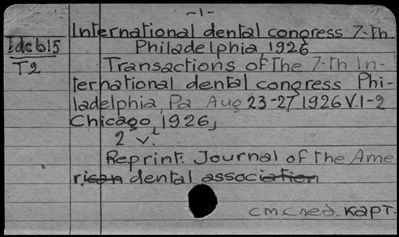 -1-
International dental congress 7-th
Idcb15 Philadelphia, 1926
T2 Transactions of the 7-th In-
ternational dental congress Phi-
ladelphia, Pa Aug 23-27 1926 V.1-2
Chicago, 1926,
2 v.
Reprint. Journal of the Ame
rican dental association
см след. карт.